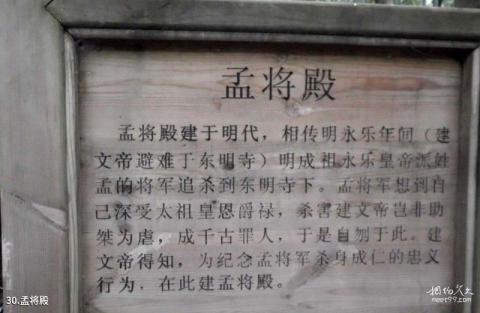 孟将殿
孟将殿建于明代，相传明永乐年间（建
文帝避难于东明寺）明成祖永乐皇帝派姓
孟的将军追杀到东明寺下。孟将军想到自
己深受太祖皇恩爵禄，杀害建文帝岂非助
桀为虐，成千古罪人，于是自刎于此。建
文帝得知，为纪念孟将军杀身成仁的忠义
行为，在此建孟将殿。
30.孟将殿
meet99.com